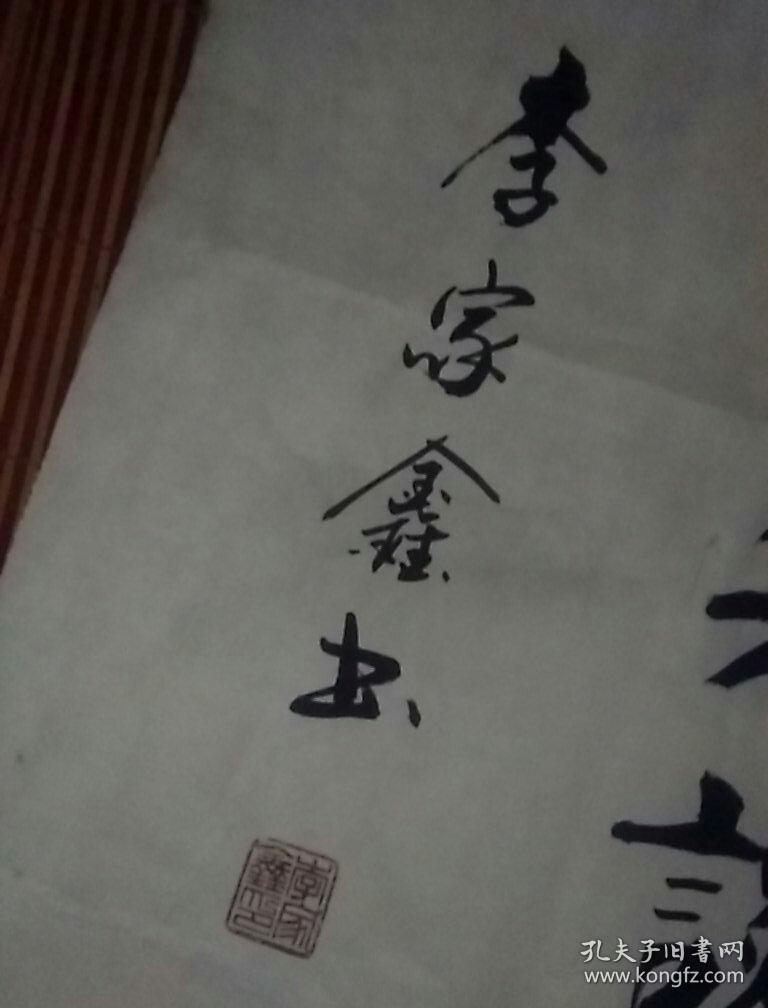 李家鑫书
李家
鑫印
孔夫子旧书网
www.kongfz.com